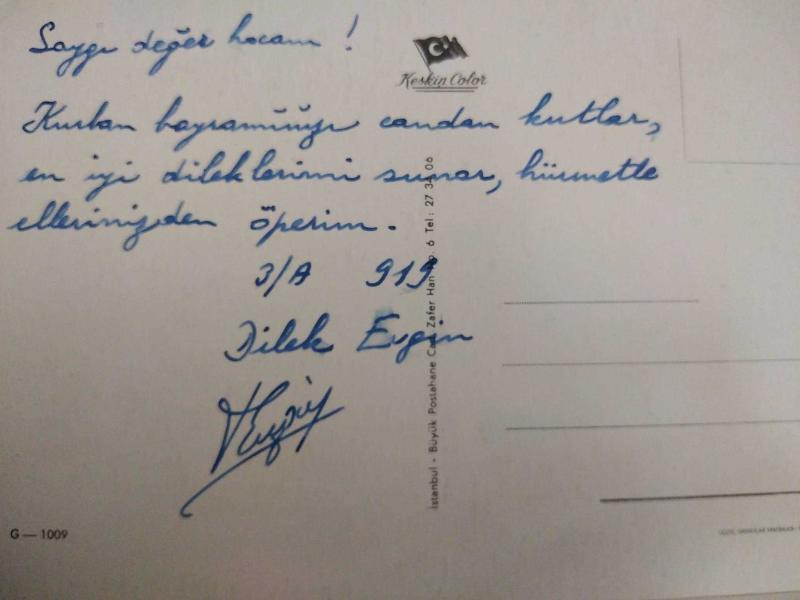 Saygı değer hocam !
Keskin Color
Kurban bayramınızı candan kutlar,
en iyi dileklerimi sunar, hürmetle
ellerinizden öperim.
3/A 919
Dilek Ergin
İstanbul - Büyük Postahane Cad. Zafer Han No. 6 Tel: 27 34 06
G — 1009